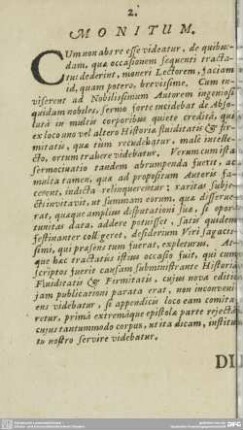 2.
MONITUM.
CUm non abs re esse videatur, de quibus-
dam, quæ occasionem sequenti tracta-
tui dederint, moneri Lectorem, faciam
id, quam potero, brevissime. Cum in-
viserent ad Nobilissimum Autorem ingeniosi
quidam nobiles, sermo forte incidebat de Abso-
luta in multis corporibus quiete credita, quæ
ex loco uno vel altero Historiæ fluiditatis & fir-
mitatis, quæ tum recudebatur, male intelle-
cto, ortum trahere videbatur. Verum cum ista
sermocinatio tandem abrumpenda fuerit, ac
multa tamen, quæ ad propositum Autoris fa-
cerent, indicta relinquerentur; raritas subje-
cti invitavit, ut summam eorum, quæ disserue-
rat, quæque amplius disputationi suæ, si opor-
tunitas data, addere potuisset, satis quidem
festinanter colligeret, desiderium Viri sagacis-
simi, qui præsens tum fuerat, expleturus. At-
que hæc tractatus istius occasio fuit, qui cum
scriptos fuerit causam subministrante Historia
Fluiditatis & Firmitatis, cujus nova editio
jam publicationi parata erat, non inconveni-
ens videbatur, si appendicis loco eam comita-
retur, prima extremaque epistolæ parte rejecta,
cujus tantummodo corpus, ut ita dicam, institu-
to nostro servire videbatur.